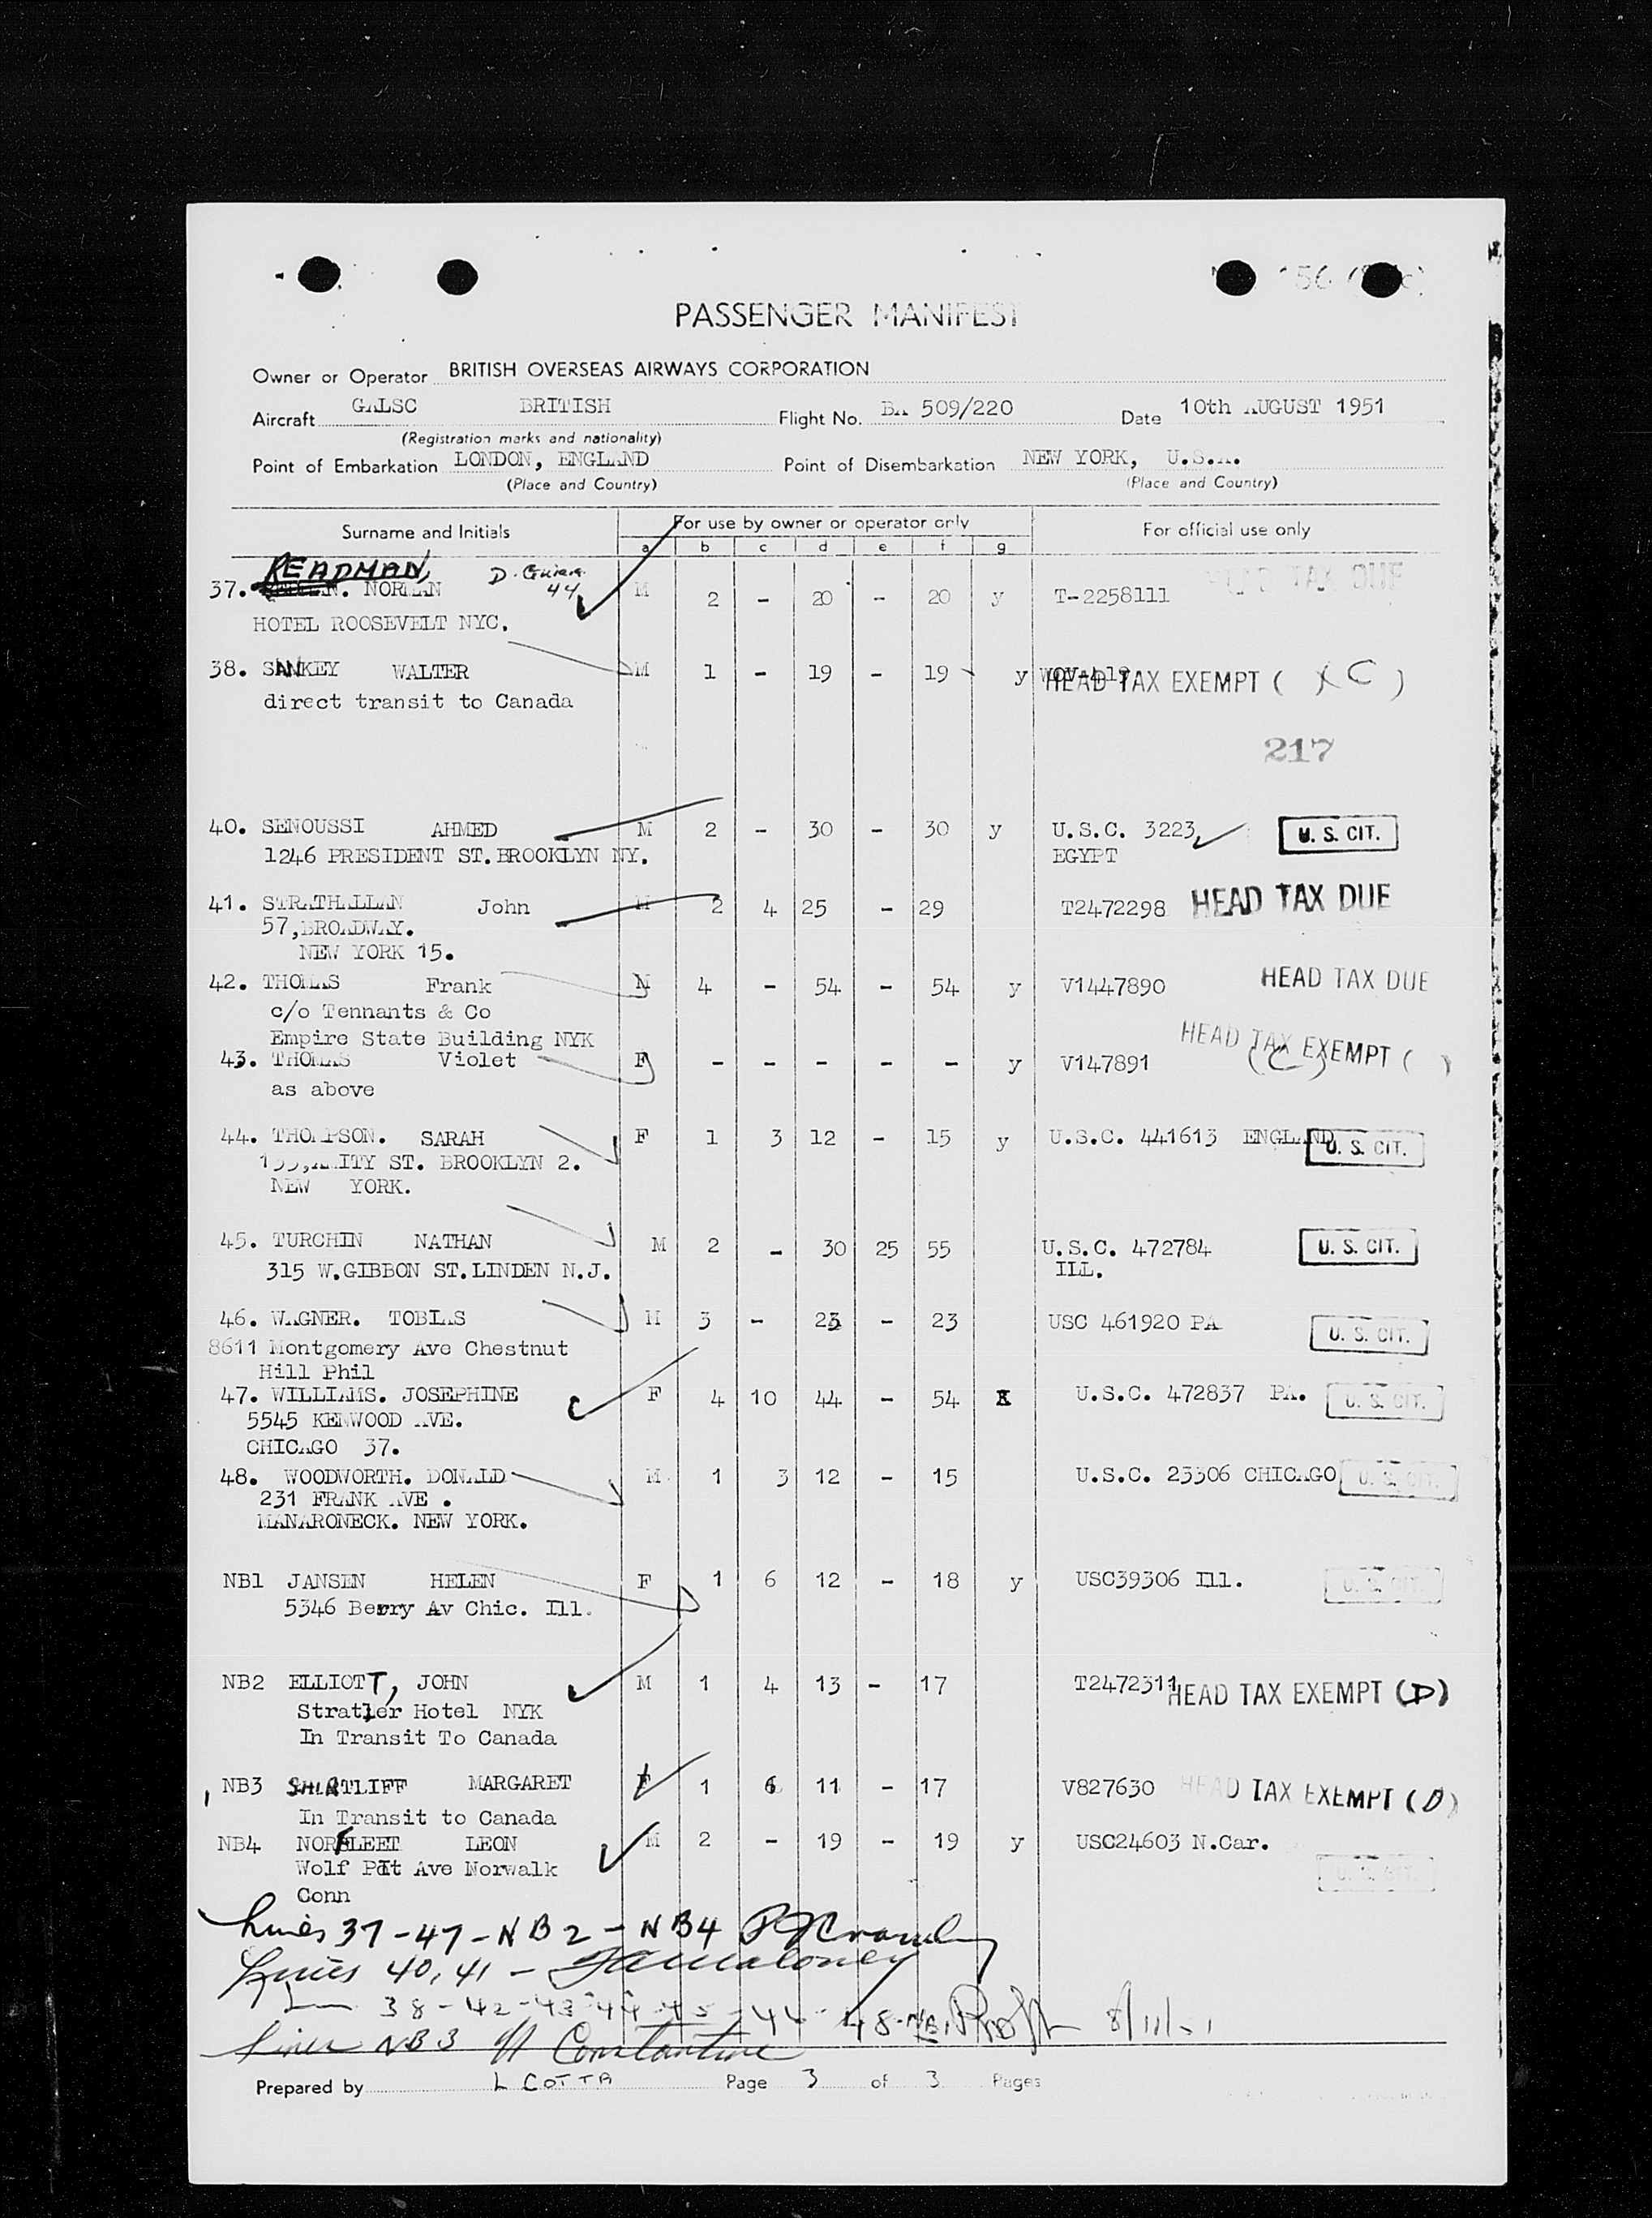 PASSENGER MANIFEST
Owner or Operator BRITISH OVERSEAS AIRWAYS CORPORATION
Aircraft GALSC BRITISH Flight No. BA 509/220 Date 10th AUGUST 1951
(Registration marks and nationality)
Point of Embarkation LONDON, ENGLAND Point of Disembarkation NEW YORK, U.S.A.
(Place and Country) (Place and Country)
Surname and Initials For use by owner or operator only For official use only
a b c d e f g
READMAN,
37. NORMAN 44 M 2 - 20 - 20 y T-2258111 HEAD TAX DUE
HOTEL ROOSEVELT NYC.
38. SANKEY WALTER M 1 - 19 - 19 y HEAD TAX EXEMPT ( C )
direct transit to Canada
217
40. SENOUSSI AHMED M 2 - 30 - 30 y U.S.C. 3223 U. S. CIT.
1246 PRESIDENT ST. BROOKLYN NY. EGYPT
41. STRATHALLAN John M 2 4 25 - 29 T2472298 HEAD TAX DUE
57, BROADWAY.
NEW YORK 15.
42. THOMAS Frank M 4 - 54 - 54 y V1447890 HEAD TAX DUE
c/o Tennants & Co
Empire State Building NYK
43. THOMAS Violet F - - - - - y V147891 HEAD TAX EXEMPT ( )
(C)
as above
44. THOMPSON. SARAH F 1 3 12 - 15 y U.S.C. 441613 ENGLAND U. S. CIT.
AMITY ST. BROOKLYN 2.
NEW YORK.
45. TURCHIN NATHAN M 2 - 30 25 55 U.S.C. 472784 U. S. CIT.
315 W.GIBBON ST.LINDEN N.J. ILL.
46. WAGNER. TOBIAS M 3 - 23 - 23 USC 461920 PA U. S. CIT.
8611 Montgomery Ave Chestnut
Hill Phil
47. WILLIAMS. JOSEPHINE F 4 10 44 - 54 X U.S.C. 472837 PA. U. S. CIT.
5545 KENWOOD AVE.
CHICAGO 37.
48. WOODWORTH. DONALD M 1 3 12 - 15 U.S.C. 23306 CHICAGO U. S. CIT.
231 FRANK AVE .
MANARONECK. NEW YORK.
NB1 JANSEN HELEN F 1 6 12 - 18 y USC39306 Ill. U. S. CIT.
5346 Berry Av Chic. Ill.
NB2 ELLIOTT, JOHN M 1 4 13 - 17 T2472311 HEAD TAX EXEMPT (D)
Statler Hotel NYK
In Transit To Canada
NB3 MARGARET F 1 6 11 - 17 V827630 HEAD TAX EXEMPT (D)
In Transit to Canada
NB4 NORFLEET LEON M 2 - 19 - 19 y USC24603 N.Car.
Wolf Pit Ave Norwalk U. S. CIT.
Conn
Lines 37-47-NB2-NB4
Lines 40,41 - Maloney
38-42-43-44-45 8/11/51
Lines NB3 Constantine
Prepared by L COTTA Page 3 of 3 Pages